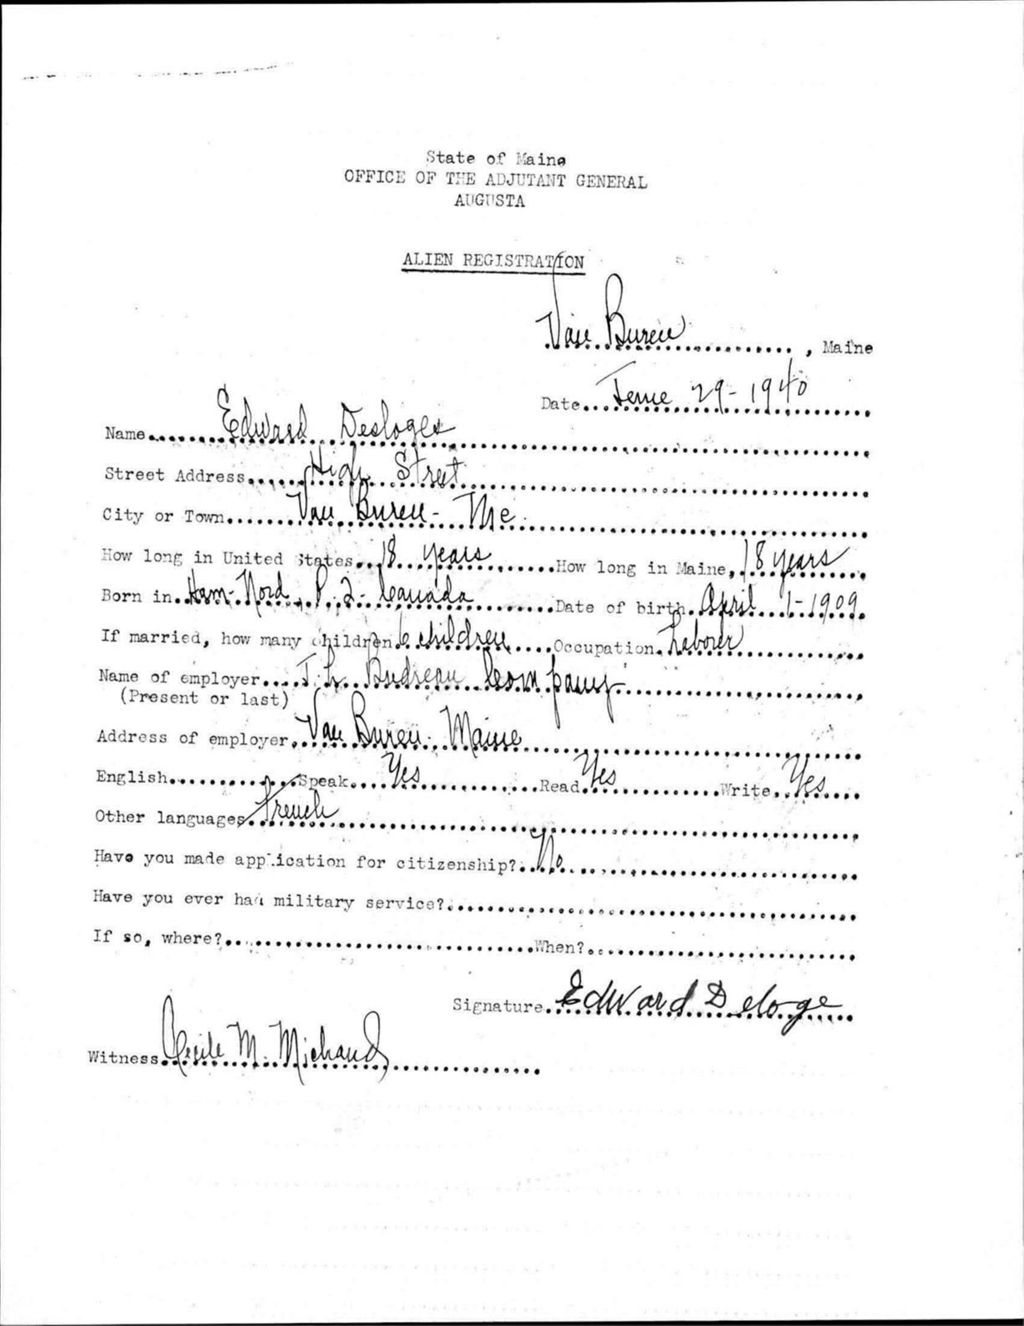 State of Maine
OFFICE OF THE ADJUTANT GENERAL
AUGUSTA
ALIEN REGISTRATION
Van Buren, Maine
Date June 29-1940
Name Edward Desloges
Street Address High Street
City or Town Van Buren - Me
How long in United States 18 years How long in Maine, 18 years
Born in Ham-Nord, P.Q - Canada Date of birth April 1-1909
If married, how many children 6 children Occupation Laborer
Name of employer Budreau Company
(Present or last)
Address of employer Van Buren. Maine
English Speak Yes Read Yes Write Yes
Other languages French
Have you made application for citizenship? No
Have you ever had military service?
If so, where? When?
Signature Edward Deloge
Witness Cecile M. Michaud